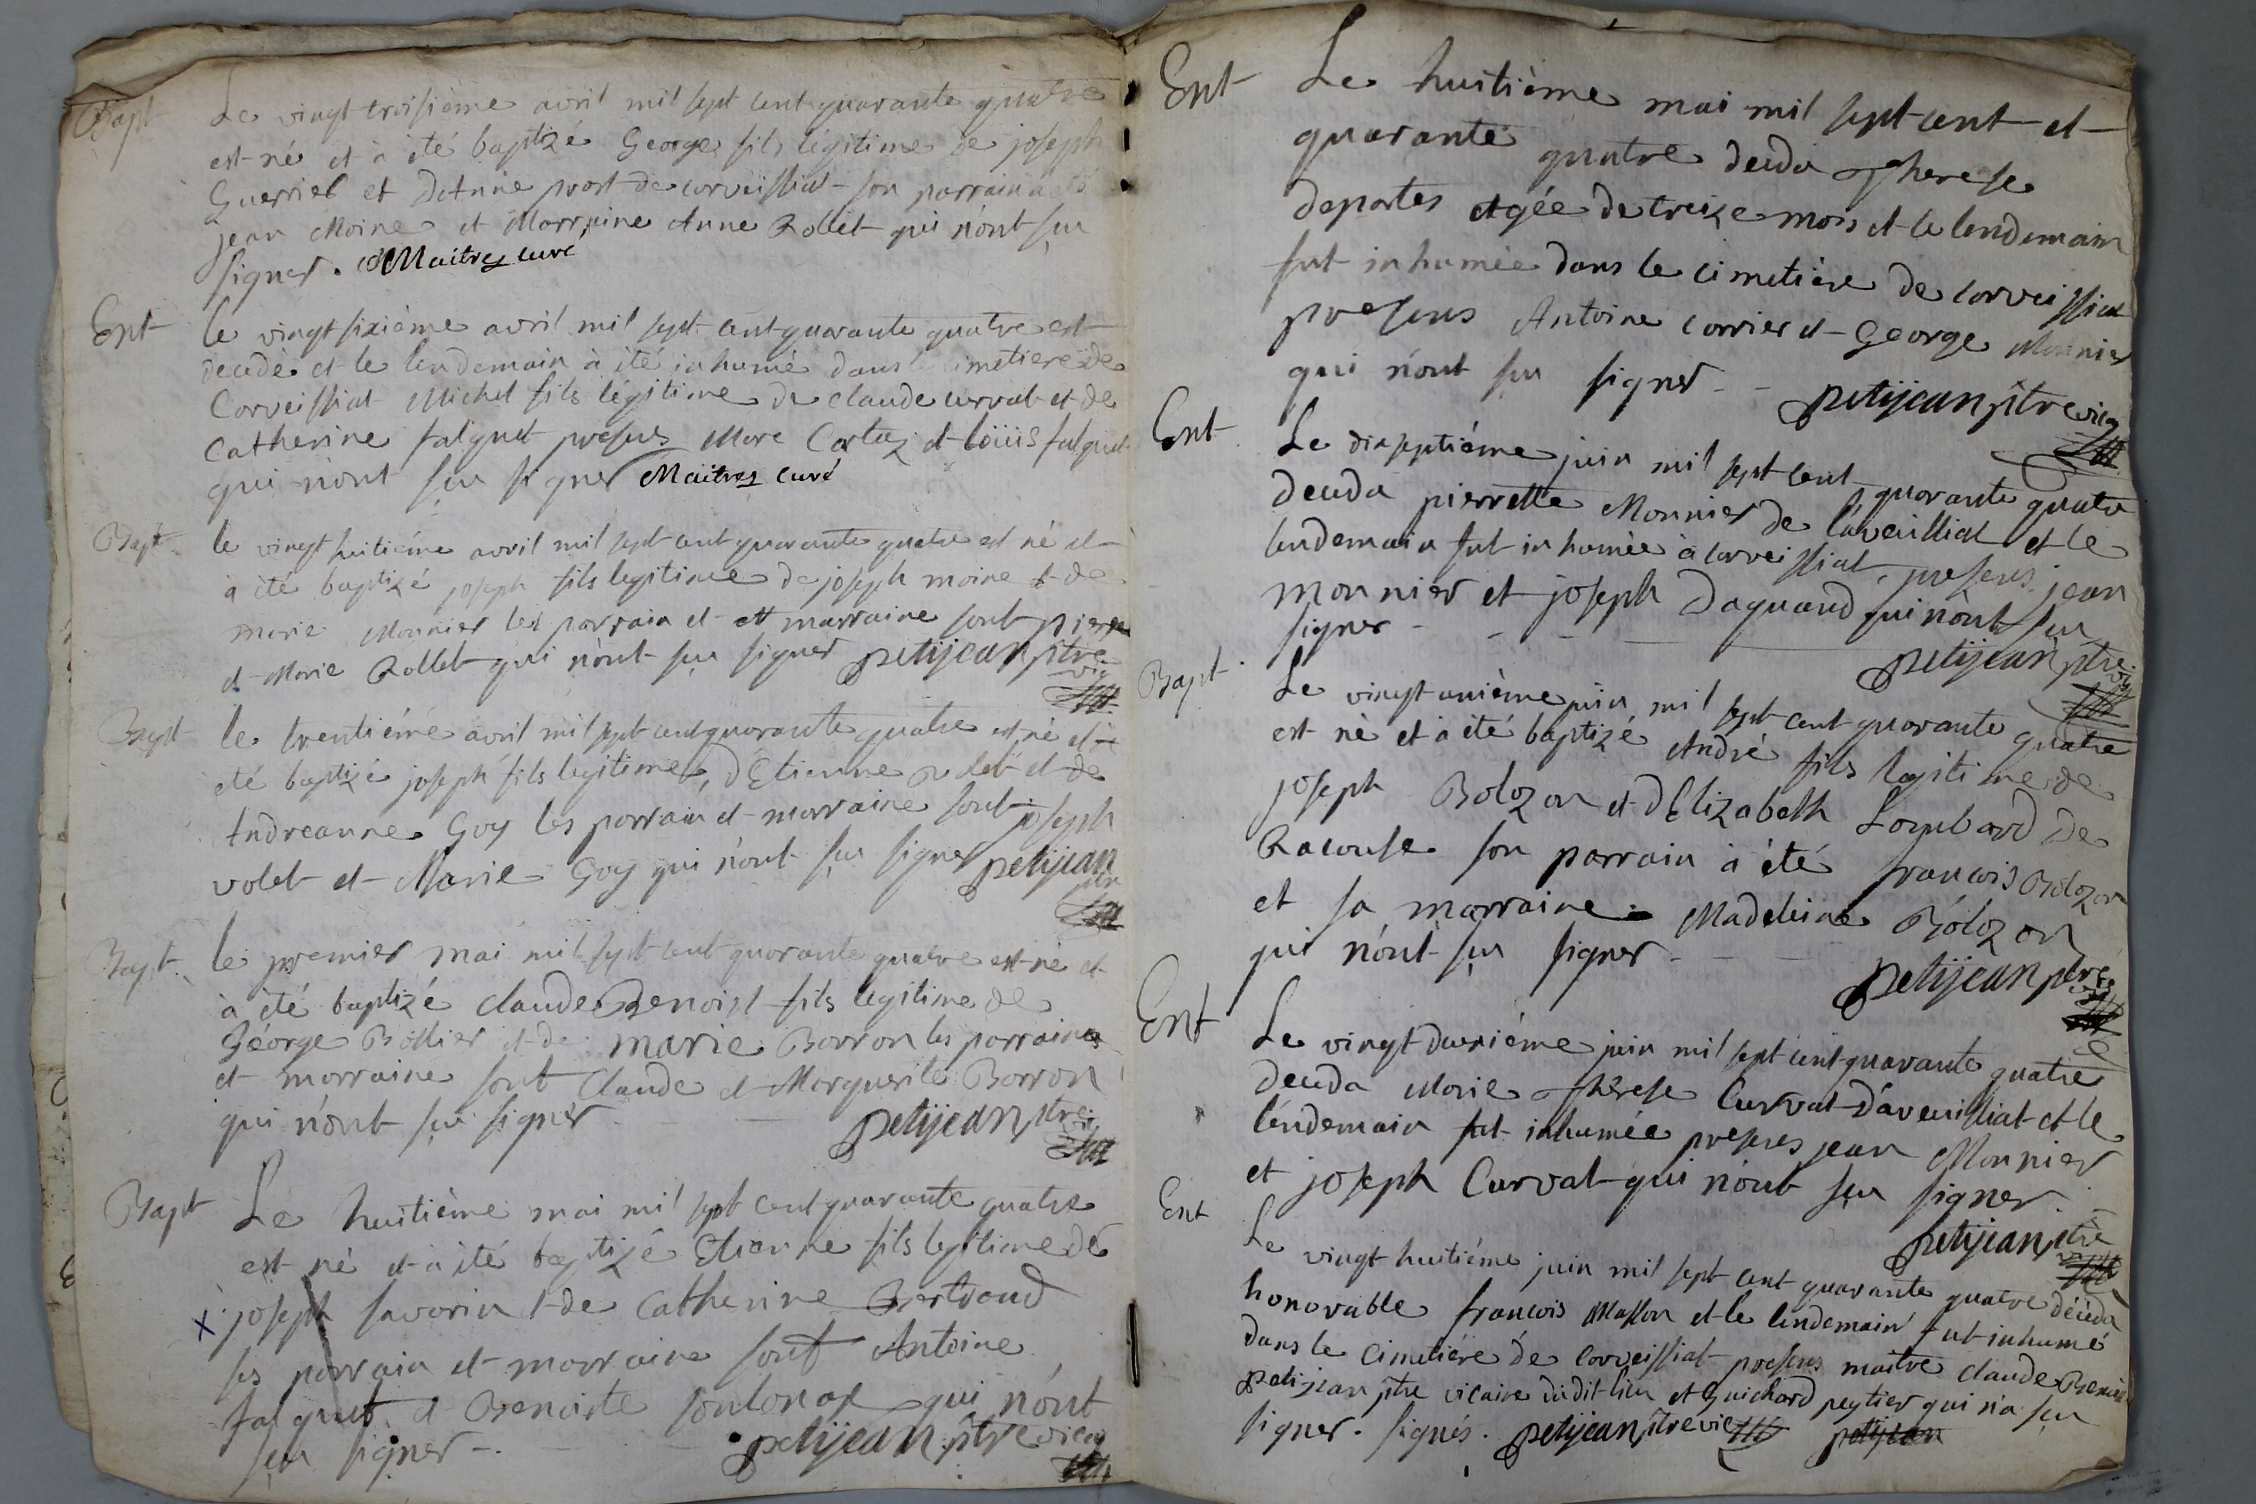 Bapt
Le vingt troisième avril mil sept cent quarante quatre
est né et à été baptizé George fils légitime de joseph
Guerrier et d'Anne prost de corveissiat son parrain a été
jean Moine et Marraine Anne Rollet qui n'ont sçu
signer. Maitres curé
Ent
le vingt sixième avril mil sept cent quarante quatre est
decedé et le lendemain à été inhumé dans le cimetiere de
Corveissiat Michel fils légitime de claude curval et de
Catherine falquet presens Marc Cartaz et loüis falquet
qui n'ont sçu signer Maitres curé
Bapt
le vingt huitiéme avril mil sept cent quarante quatre est né et
à été baptizé joseph fils legitime de joseph moine et de
marie Monnier les parrain et marraine sont pierre
et Marie Rollet qui n'ont sçu signer petijean ptre
vic
Bapt
le trentiéme avril mil sept cent quarante quatre est né et à
été baptizé joseph fils legitime d'Etienne volet et de
Andreanne Goy les parrain et marraine sont joseph
volet et Marie Goy qui n'ont sçu signer petijean
ptre
Bapt
le premier mai mil sept cent quarante quatre est né et
à été baptizé claude Benoist fils legitime de
George Bollier et de marie Borron les parrain
et marraine sont Claude et Marguerite Borron
qui n'ont sçu signer petijean ptre
Bapt
Le huitième mai mil sept cent quarante quatre
est né et à été baptizé Etienne fils legitime de
x joseph savarin et de Catherine Bertrand
ses parrain et marraine sont Antoine
falquet et Benoiste soulonax qui n'ont
sçu signer petijean ptre vicai
Ent
Le huitième mai mil sept cent et
quarante quatre deceda Therese
deportes Agée de treize mois et le lendemain
fut inhumée dans le cimetière de corveissiat
presens Antoine corrier et George Monnier
qui n'ont sçu signer petijean ptre vicai
Ent
Le dixseptiéme juin mil sept cent quarante quatre
deceda pierrette Monnier de l'aveissiat et le
lendemain fut inhumée à corveissiat, presens jean
monnier et joseph daguand qui n'ont sçu
signer
petijean ptre vic
Bapt
Le vingt unième juin mil sept cent quarante quatre
est né et à été baptizé André fils legitime de
joseph Bolozon et d'Elizabeth Lombard de
Racouse son parrain à été francois Bolozon
et sa marraine Madeleine Bolozon
qui n'ont sçu signer
petijean ptre
Ent
Le vingt deuxiéme juin mil sept cent quarante quatre
deceda Marie Therese Curval d'aveissiat et le
lendemain fut inhumée presens jean Monnier
et joseph Curval qui n'ont sçu signer
petijean ptre
Ent
Le vingt huitiéme juin mil sept cent quarante quatre décéda
honorable francois Masson et le lendemain fut inhumé
dans le cimetiére de corveissiat presens maitre claude Benoist
petijean ptre vicaire dudit lieu et Guichard peytier qui n'a sçu
signer. signés. petijean ptre vic petijean